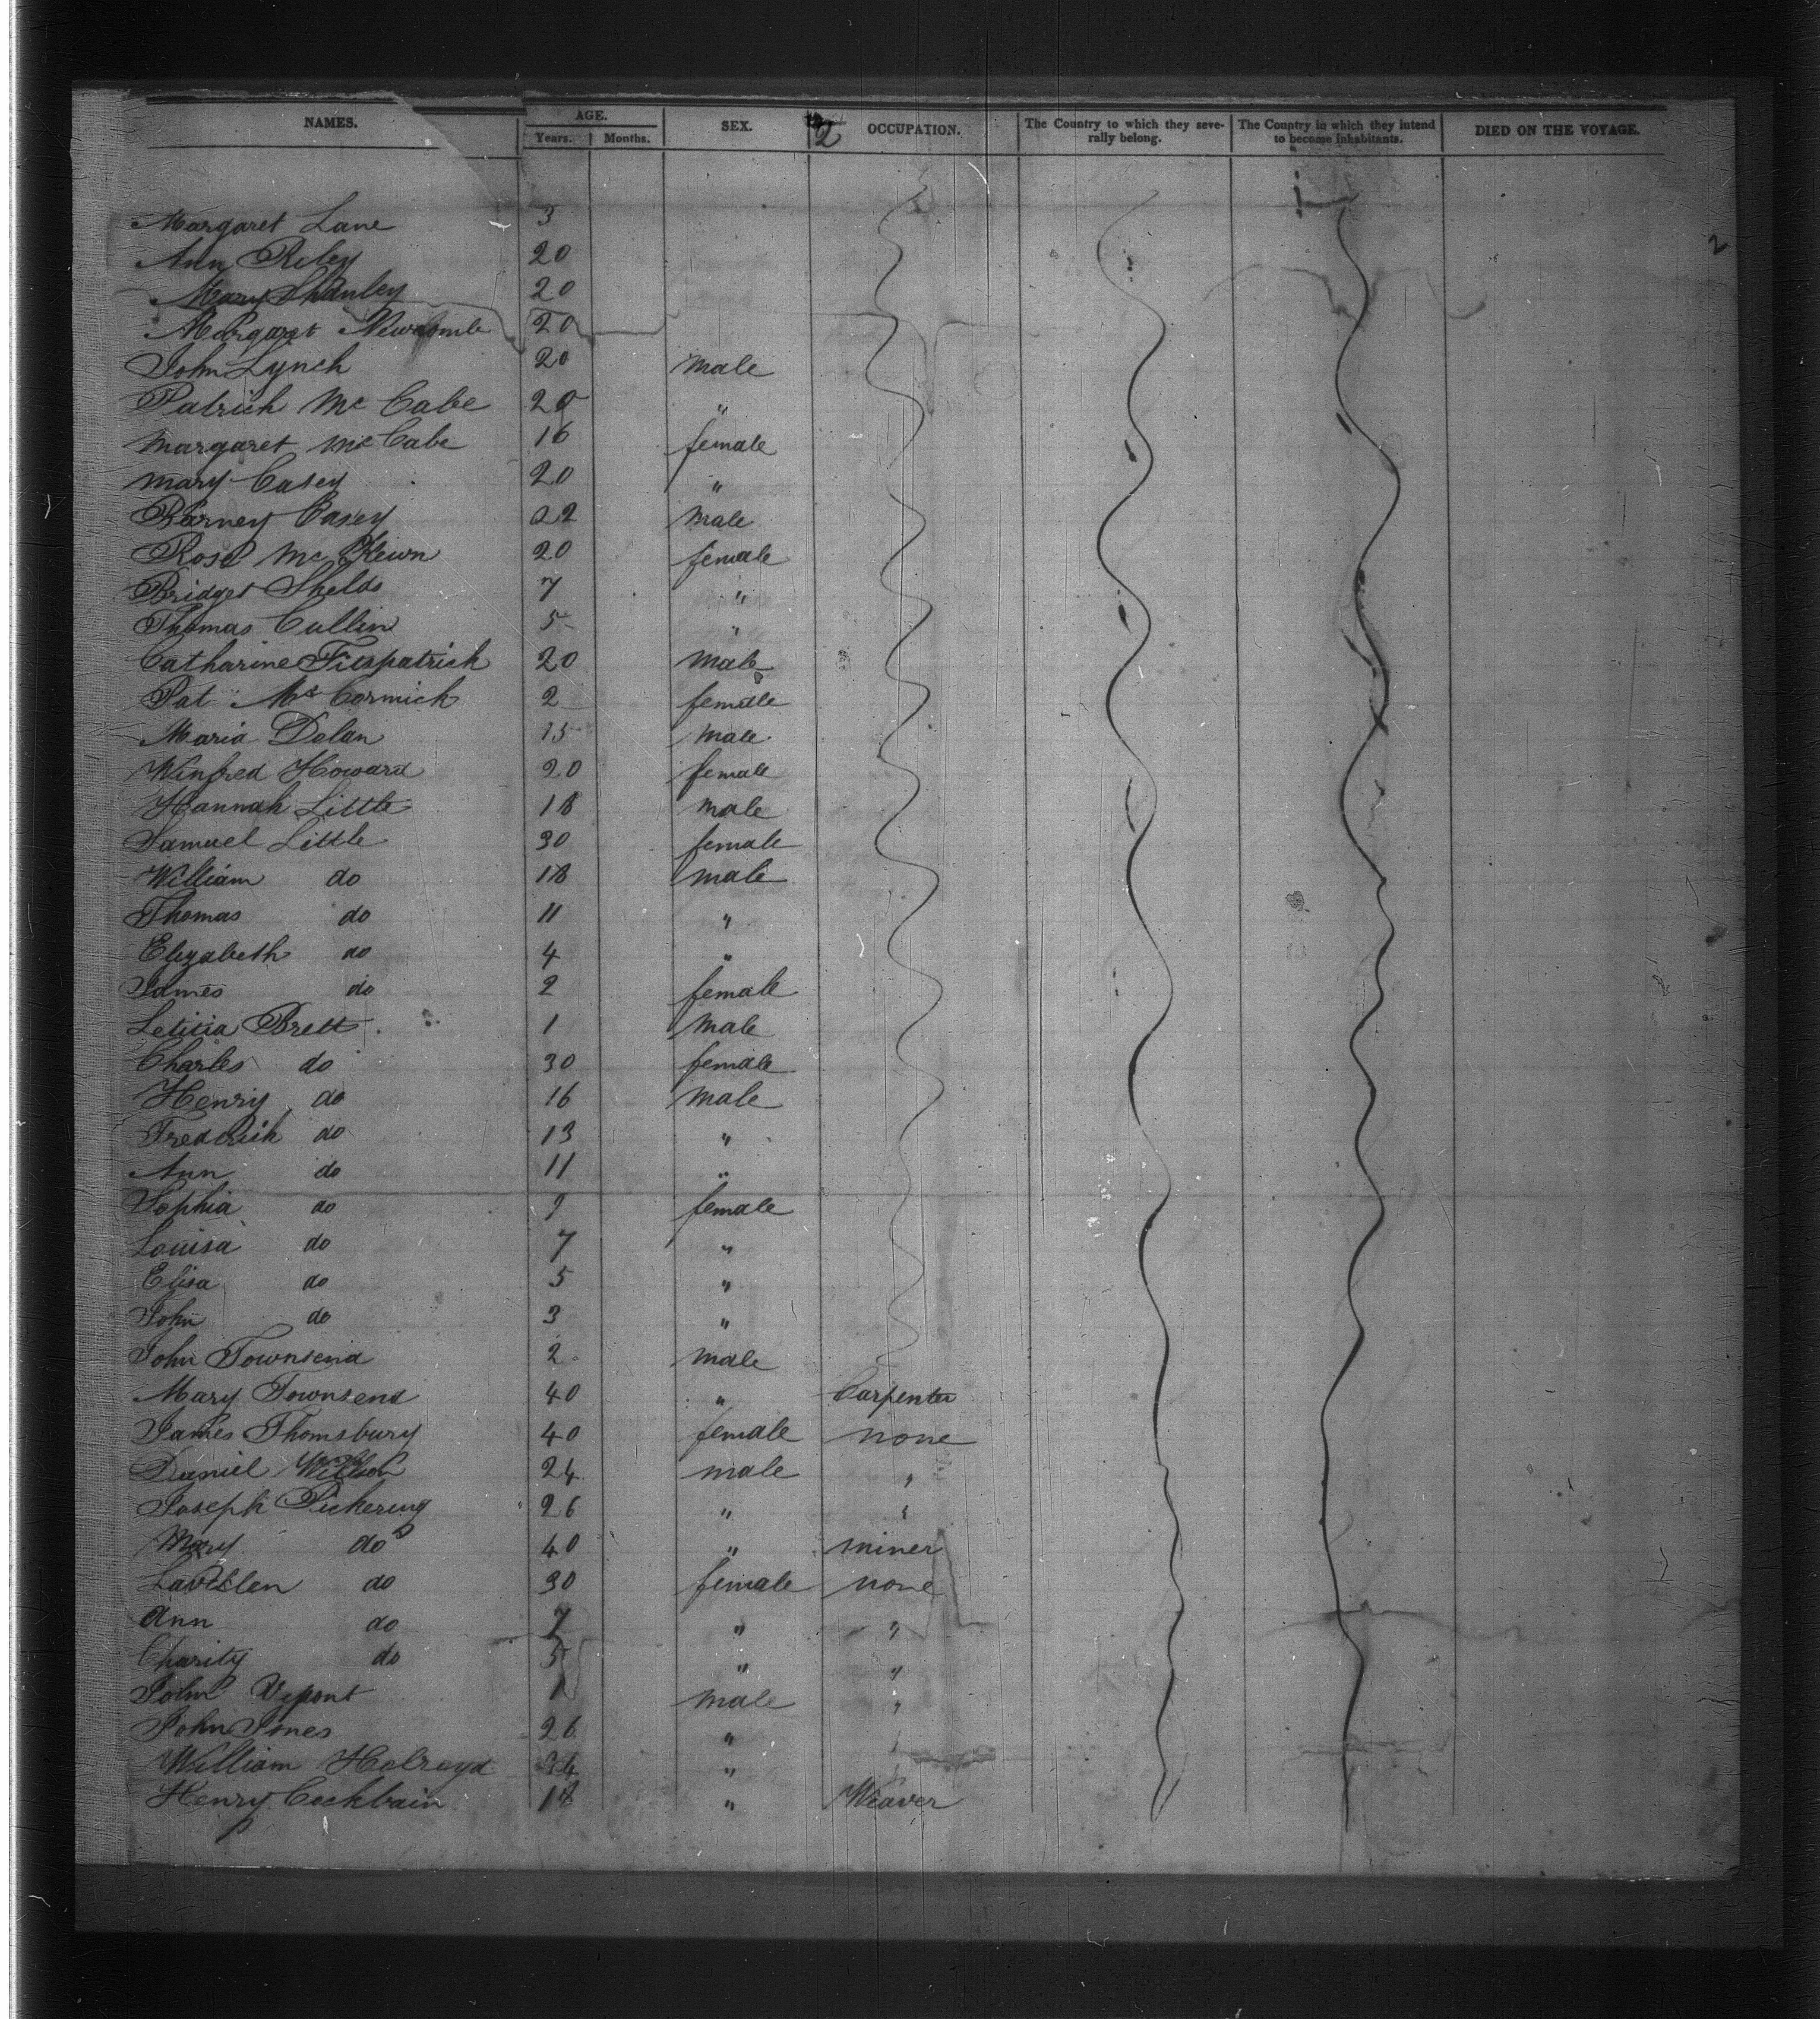 NAMES. AGE. Years. Months. SEX. 2 OCCUPATION. The Country to which they severally belong. The Country in which they intend to become inhabitants. DIED ON THE VOYAGE.
2
Margaret Lane 3
Ann Riley 20
Mary Shanley 20
Margaret Newcomb 20
John Lynch 20 male
Patrick McCabe 20 "
Margaret McCabe 16 female
Mary Casey 20 "
Barney Casey 22 male
Rose McKewn 20 female
Bridget Shelds 7 "
Thomas Cullin 5 "
Catharine Fitzpatrick 20 male
Pat McCormick 2 female
Maria Dolan 15 male
Winfred Howard 20 female
Hannah Little 18 male
Samuel Little 30 female
William do 18 male
Thomas do 11 "
Elizabeth do 4 "
James do 2 female
Leticia Brett 1 male
Charles do 30 female
Henry do 16 male
Frederick do 13 "
Ann do 11 "
Sophia do 9 female
Louisa do 7 "
Elisa do 5 "
John do 3 "
John Townsend 2 male
Mary Townsend 40 " Carpenter
James Thornsbury 40 female none
Daniel 24 male "
Joseph Pickering 26 " "
Mary do 40 " miner
do 30 female none
Ann do 7 " "
Charity do 5 " "
John Vepont 1 male "
John Jones 26 "
William Holroyd 34 "
Henry Cockbain 18 " Weaver